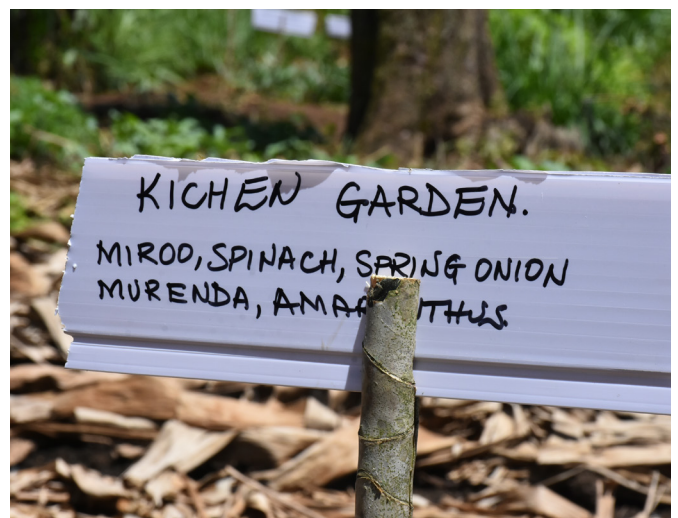 KICHEN GARDEN.
MIROO, SPINACH, SPRING ONION
MURENDA,